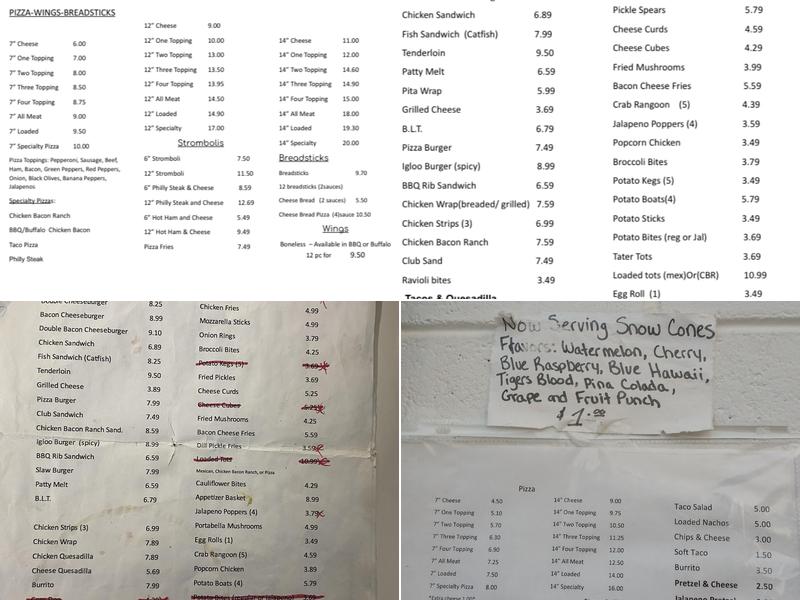 PIZZA-WINGS-BREADSTICKS
7" Cheese 6.00
7" One Topping 7.00
7" Two Topping 8.00
7" Three Topping 8.50
7" Four Topping 8.75
7" All Meat 9.00
7" Loaded 9.50
7" Specialty Pizza 10.00
Pizza Toppings: Pepperoni, Sausage, Beef,
Ham, Bacon, Green Peppers, Red Peppers,
Onion, Black Olives, Banana Peppers,
Jalapenos
Specialty Pizzas:
Chicken Bacon Ranch
BBQ/Buffalo Chicken Bacon
Taco Pizza
Philly Steak
12" Cheese 9.00
12" One Topping 10.00
12" Two Topping 13.00
12" Three Topping 13.50
12" Four Topping 13.95
12" All Meat 14.50
12" Loaded 14.90
12" Specialty 17.00
Strombolis
6" Stromboli 7.50
12" Stromboli 11.50
6" Philly Steak & Cheese 8.59
12" Philly Steak and Cheese 12.69
6" Hot Ham and Cheese 5.49
12" Hot Ham & Cheese 9.49
Pizza Fries 7.49
14" Cheese 11.00
14" One Topping 12.00
14" Two Topping 14.60
14" Three Topping 14.90
14" Four Topping 15.00
14" All Meat 18.00
14" Loaded 19.30
14" Specialty 20.00
Breadsticks
Breadsticks 9.70
12 breadsticks (2sauces)
Cheese Bread (2 sauces) 5.50
Cheese Bread Pizza (4)sauce 10.50
Wings
Boneless – Available in BBQ or Buffalo
12 pc for 9.50
Chicken Sandwich 6.89
Fish Sandwich (Catfish) 7.99
Tenderloin 9.50
Patty Melt 6.59
Pita Wrap 5.99
Grilled Cheese 3.69
B.L.T. 6.79
Pizza Burger 7.49
Igloo Burger (spicy) 8.99
BBQ Rib Sandwich 6.59
Chicken Wrap(breaded/ grilled) 7.59
Chicken Strips (3) 6.99
Chicken Bacon Ranch 7.59
Club Sand 7.49
Ravioli bites 3.49
Tacos & Quesadilla
Pickle Spears 5.79
Cheese Curds 4.59
Cheese Cubes 4.29
Fried Mushrooms 3.99
Bacon Cheese Fries 5.59
Crab Rangoon (5) 4.39
Jalapeno Poppers (4) 3.59
Popcorn Chicken 3.49
Broccoli Bites 3.79
Potato Kegs (5) 3.49
Potato Boats(4) 5.79
Potato Sticks 3.49
Potato Bites (reg or Jal) 3.69
Tater Tots 3.69
Loaded tots (mex)Or(CBR) 10.99
Egg Roll (1) 3.49
Double Cheeseburger 8.25
Bacon Cheeseburger 8.99
Double Bacon Cheeseburger 9.10
Chicken Sandwich 6.89
Fish Sandwich (Catfish) 8.25
Tenderloin 9.50
Grilled Cheese 3.89
Pizza Burger 7.99
Club Sandwich 7.49
Chicken Bacon Ranch Sand. 8.59
Igloo Burger (spicy) 8.99
BBQ Rib Sandwich 6.59
Slaw Burger 7.99
Patty Melt 6.59
B.L.T. 6.79
Chicken Strips (3) 6.99
Chicken Wrap 7.89
Chicken Quesadilla 7.89
Cheese Quesadilla 5.69
Burrito 7.99
Chicken Fries 4.99
Mozzarella Sticks 4.99
Onion Rings 3.79
Broccoli Bites 4.25
Potato Kegs (5) 3.69
Fried Pickles 3.69
Cheese Curds 5.25
Cheese Cubes 5.25
Fried Mushrooms 4.25
Bacon Cheese Fries 5.59
Dill Pickle Fries 3.59
Loaded Tots 10.99
Mexican, Chicken Bacon Ranch, or Pizza
Cauliflower Bites 4.29
Appetizer Basket 8.99
Jalapeno Poppers (4) 3.79
Portabella Mushrooms 4.99
Egg Rolls (1) 3.49
Crab Rangoon (5) 4.59
Popcorn Chicken 3.89
Potato Boats (4) 5.79
Potato Bites (regular or Jalapeno) 3.69
Now Serving Snow Cones
Flavors: Watermelon, Cherry,
Blue Raspberry, Blue Hawaii,
Tigers Blood, Pina Colada,
Grape and Fruit Punch
$1.00
Pizza
7" Cheese 4.50
7" One Topping 5.10
7" Two Topping 5.70
7" Three Topping 6.30
7" Four Topping 6.90
7" All Meat 7.25
7" Loaded 7.50
7" Specialty Pizza 8.00
*Extra cheese 1.00*
14" Cheese 9.00
14" One Topping 9.75
14" Two Topping 10.50
14" Three Topping 11.25
14" Four Topping 12.00
14" All Meat 12.50
14" Loaded 14.00
14" Specialty 16.00
Taco Salad 5.00
Loaded Nachos 5.00
Chips & Cheese 3.00
Soft Taco 1.50
Burrito 3.50
Pretzel & Cheese 2.50
Jalapeno Pretzel